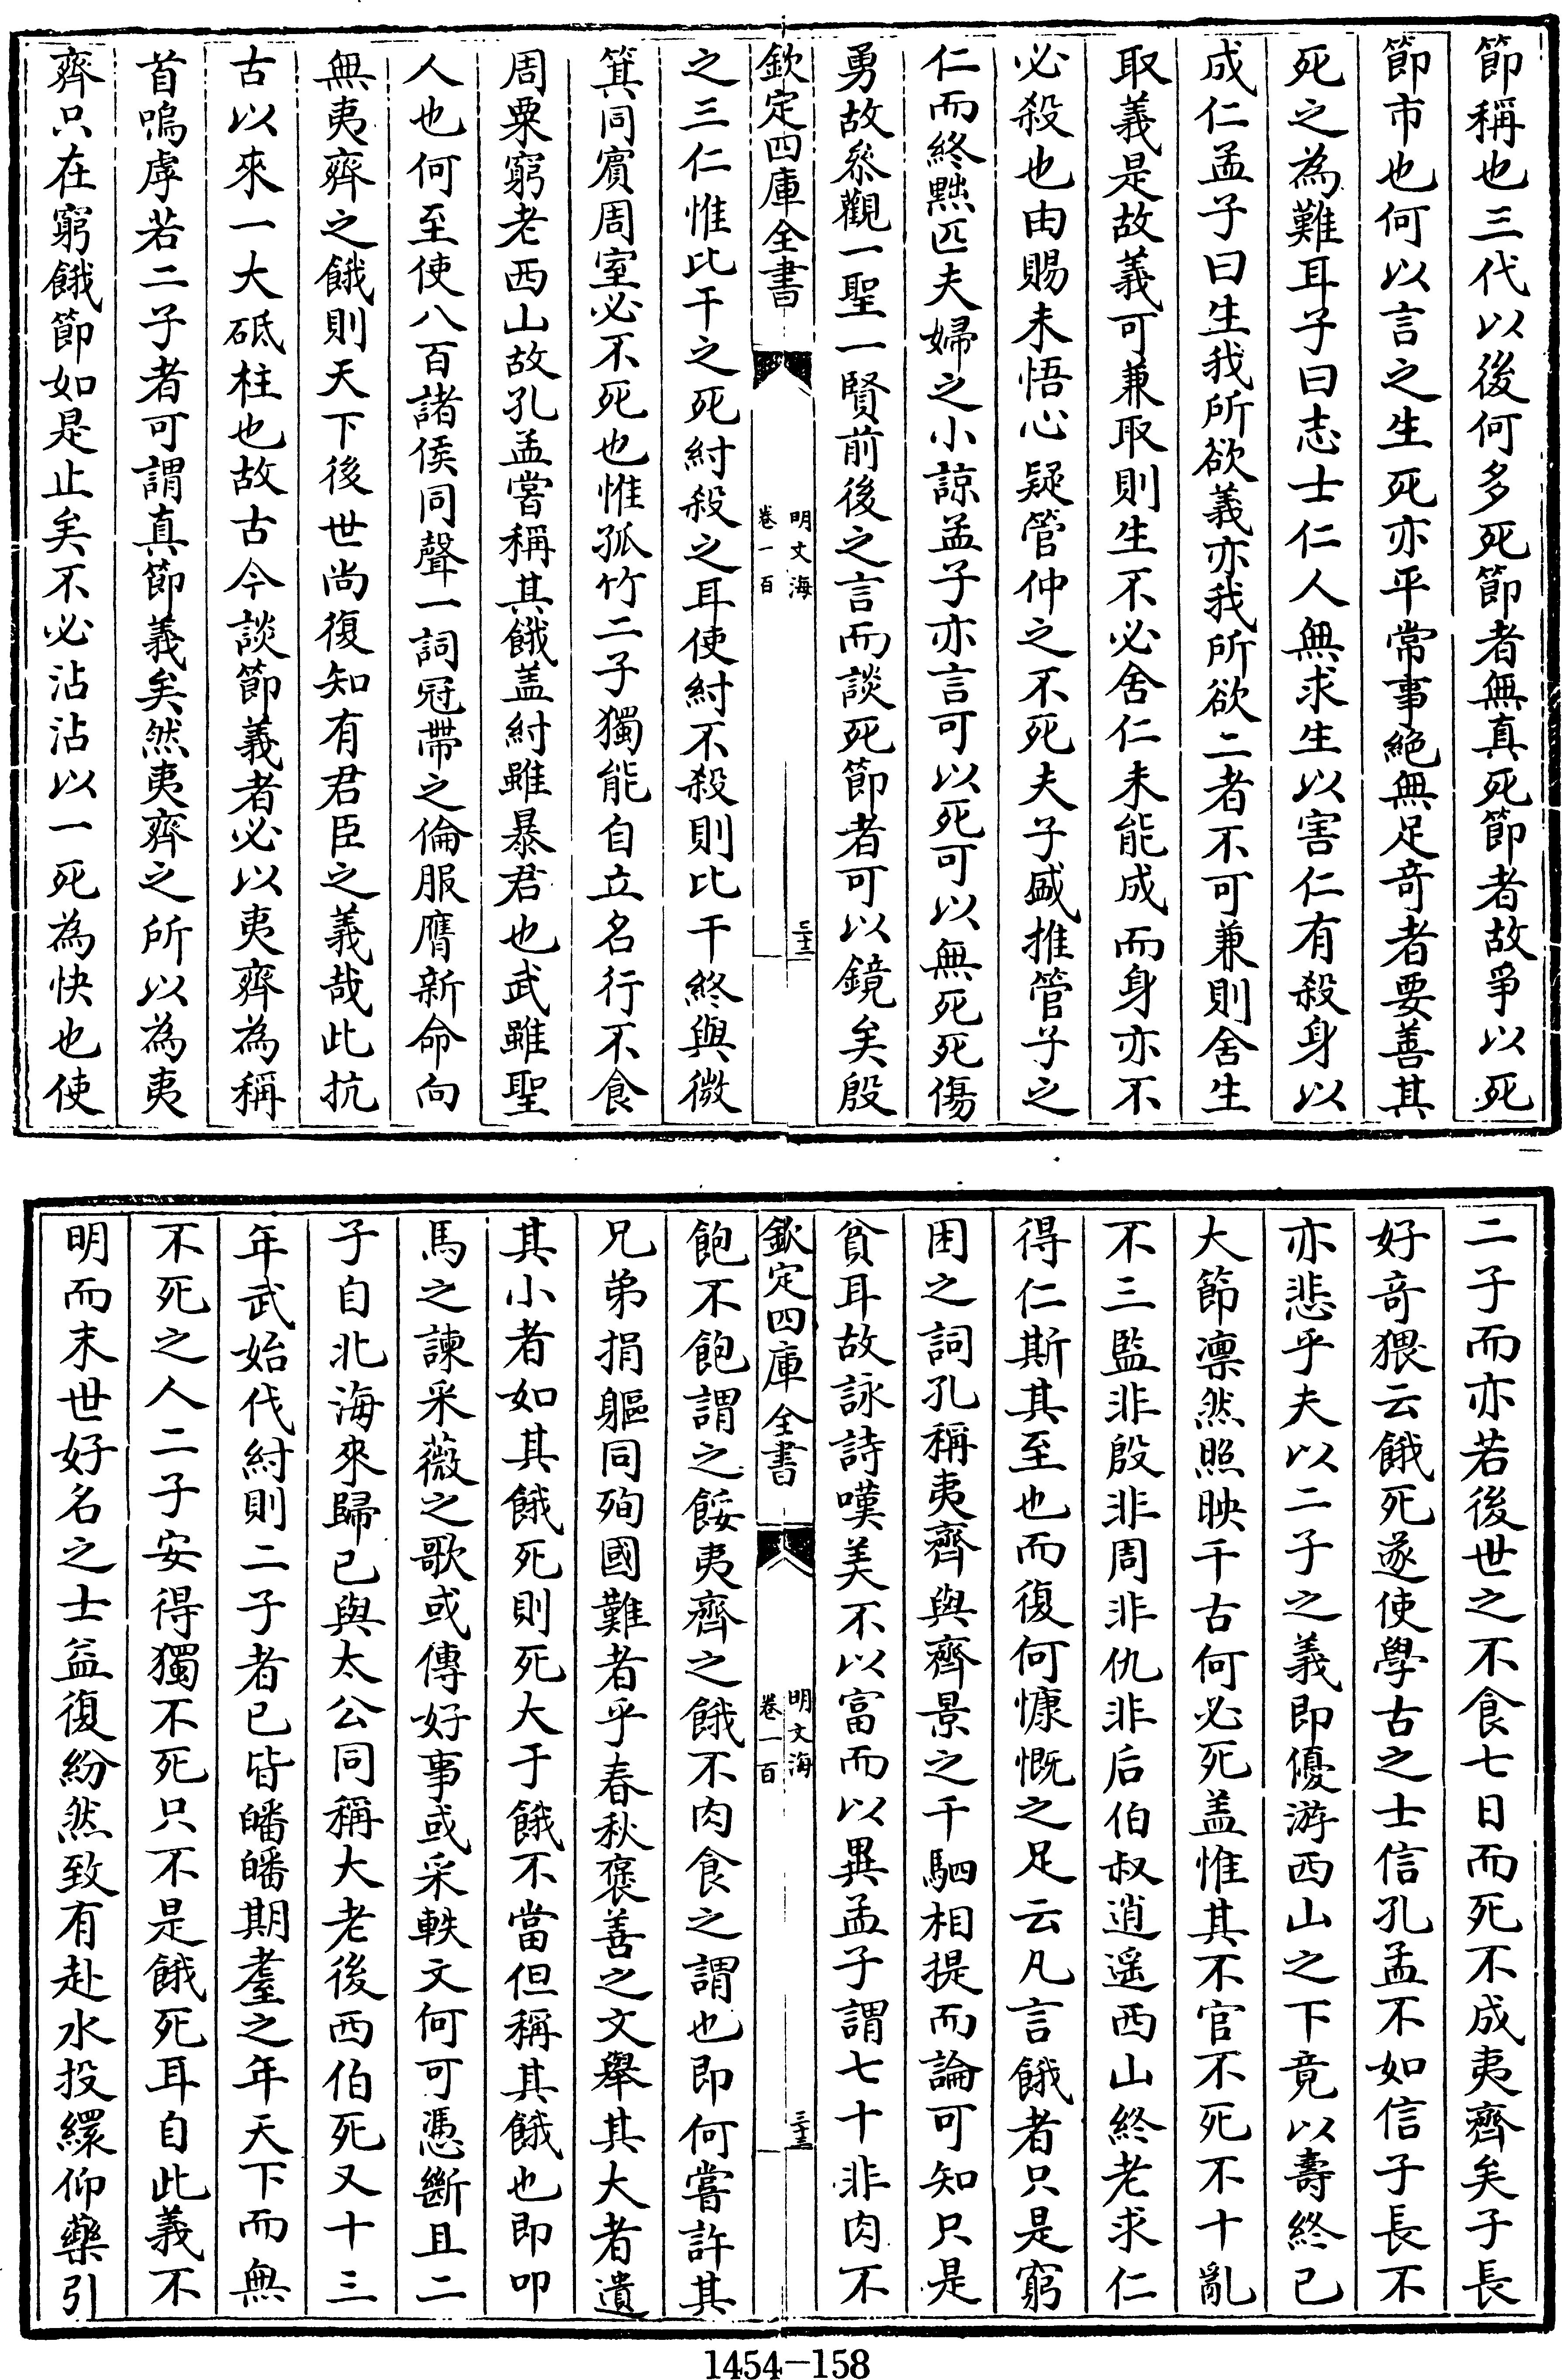 節稱也三代以後何多死節者無真死節者故爭以死
節市也何以言之生死亦平常事絶無足奇者要善其
死之為難耳子曰志士仁人無求生以害仁有殺身以
成仁孟子曰生我所欲義亦我所欲二者不可兼則舍生
取義是故義可兼取則生不必舍仁未能成而身亦不
必殺也由賜未悟心疑管仲之不死夫子盛推管子之
仁而終黜匹夫婦之小諒孟子亦言可以死可以無死死傷
勇故叅觀一聖一賢前後之言而談死節者可以鏡矣殷
欽定四庫全書
明文海
卷一百
三十二
之三仁惟比干之死紂殺之耳使紂不殺則比干終與微
箕同賓周室必不死也惟孤竹二子獨能自立名行不食
周粟窮老西山故孔孟嘗稱其餓盖紂雖暴君也武雖聖
人也何至使八百諸侯同聲一詞冠帶之倫服膺新命向
無夷齊之餓則天下後世尚復知有君臣之義哉此抗
古以來一大砥柱也故古今談節義者必以夷齊為稱
首嗚虖若二子者可謂真節義矣然夷齊之所以為夷
齊只在窮餓節如是止矣不必沾沾以一死為快也使
二子而亦若後世之不食七日而死不成夷齊矣子長
好奇猥云餓死遂使學古之士信孔孟不如信子長不
亦悲乎夫以二子之義即優游西山之下竟以壽終已
大節凛然照映千古何必死盖惟其不官不死不十亂
不三監非殷非周非仇非后伯叔逍遥西山終老求仁
得仁斯其至也而復何慷慨之足云凡言餓者只是窮
困之詞孔稱夷齊與齊景之千駟相提而論可知只是
貧耳故詠詩嘆美不以富而以異孟子謂七十非肉不
欽定四庫全書
明文海
卷一百
三十三
飽不飽謂之餒夷齊之餓不肉食之謂也即何嘗許其
兄弟捐軀同殉國難者乎春秋褒善之文舉其大者遺
其小者如其餓死則死大于餓不當但稱其餓也即叩
馬之諫采薇之歌或傳好事或采軼文何可憑斷且二
子自北海來歸已與太公同稱大老後西伯死又十三
年武始伐紂則二子者已皆皤皤期耋之年天下而無
不死之人二子安得獨不死只不是餓死耳自此義不
明而末世好名之士益復紛然致有赴水投繯仰藥引
1454—158